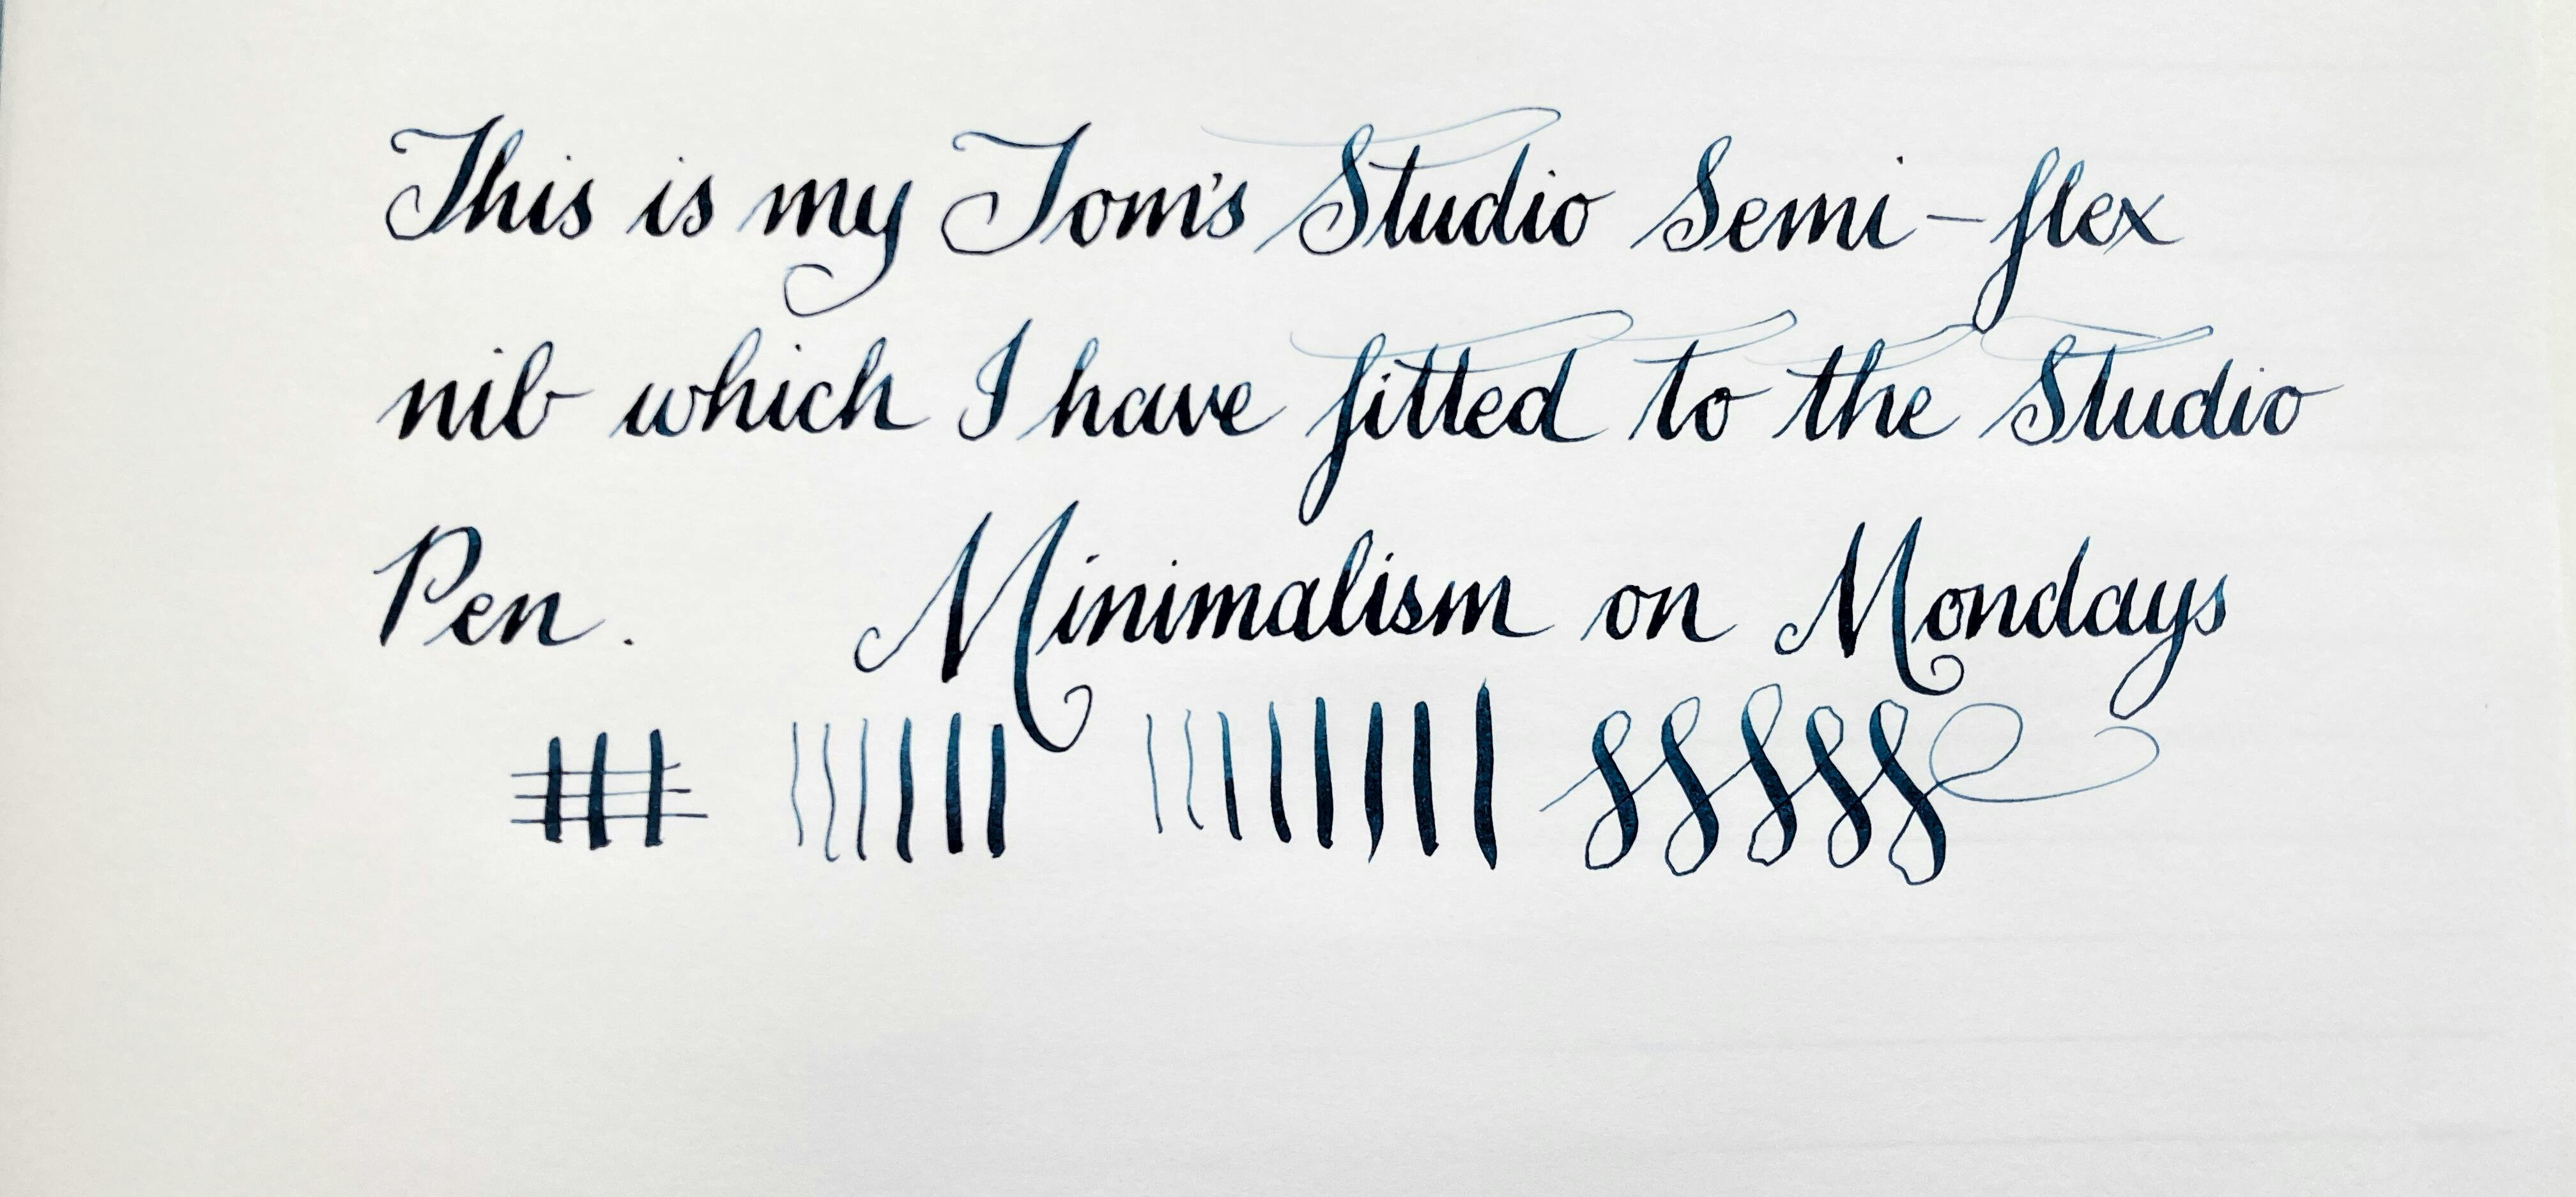 This is my Tom's Studio Semi-flex
nib which I have fitted to the Studio
Pen. Minimalism on Mondays